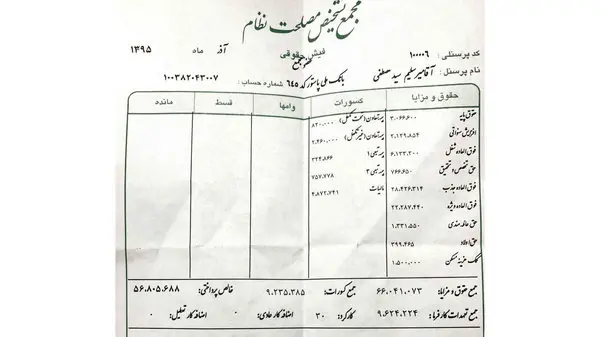 مجمع تشخیص مصلحت نظام
فیش حقوقی
آذر ماه ۱۳۹۵
عضو مجمع
کد پرسنلی: ۱۰۰۰۰۶
نام پرسنل: آقا میرسلیم سید مصطفی
بانک ملی پاستور کد ۶۴۵ شماره حساب: ۱۰۰۳۸۲۰۴۳۰۰۷
حقوق و مزایا کسورات وامها قسط مانده
حقوق پایه ۳.۰۶۶,۶۰۰
افزایش سنواتی ۲,۱۲۹,۸۵۴
فوق العاده شغل ۶,۱۳۳,۲۰۰
حق تخصص و تحقیق ۷۶۶,۶۵۰
فوق العاده جذب ۲۸,۴۲۶,۳۱۴
فوق العاده ویژه ۲۲,۲۸۷,۴۴۰
حق عائله مندی ۱,۳۳۱,۵۵۰
حق اولاد ۳۹۹,۴۶۵
کمک هزینه مسکن ۱,۵۰۰,۰۰۰
بیمه آمادن (تحت تکفل) ۸۲۰,۰۰۰
بیمه آمادن (غیر تکفل) ۲,۴۶۰,۰۰۰
بیمه تبی ۱ ۳۲۴,۸۶۶
بیمه تبی ۳ ۷۵۷,۷۷۸
مالیات ۴,۸۷۲,۷۴۱
جمع حقوق و مزایا: ۶۶,۰۴۱,۰۷۳ جمع کسورات: ۹,۲۳۵,۳۸۵ خالص پرداختی: ۵۶,۸۰۵,۶۸۸
جمع تعهدات کارفرما: ۹,۶۲۴,۲۲۴ کارکرد: ۳۰ اضافه کار عادی: ۰ اضافه کار تعطیل: ۰